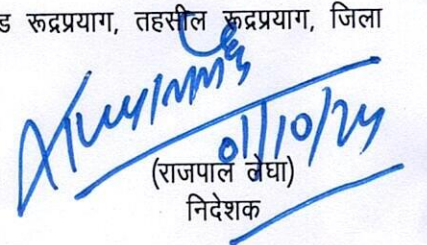 ड रूद्रप्रयाग, तहसील रूद्रप्रयाग, जिला
01/10/24
(राजपाल लेघा)
निदेशक